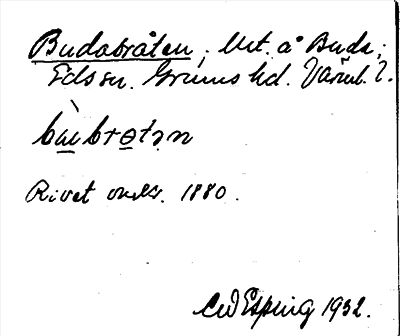 Budabråten, Utt. å Buda,
Eds sn. Grums hd. Värml. l.
bùbrɵtən
Rivet omkr. 1880.
CW Esping 1932.